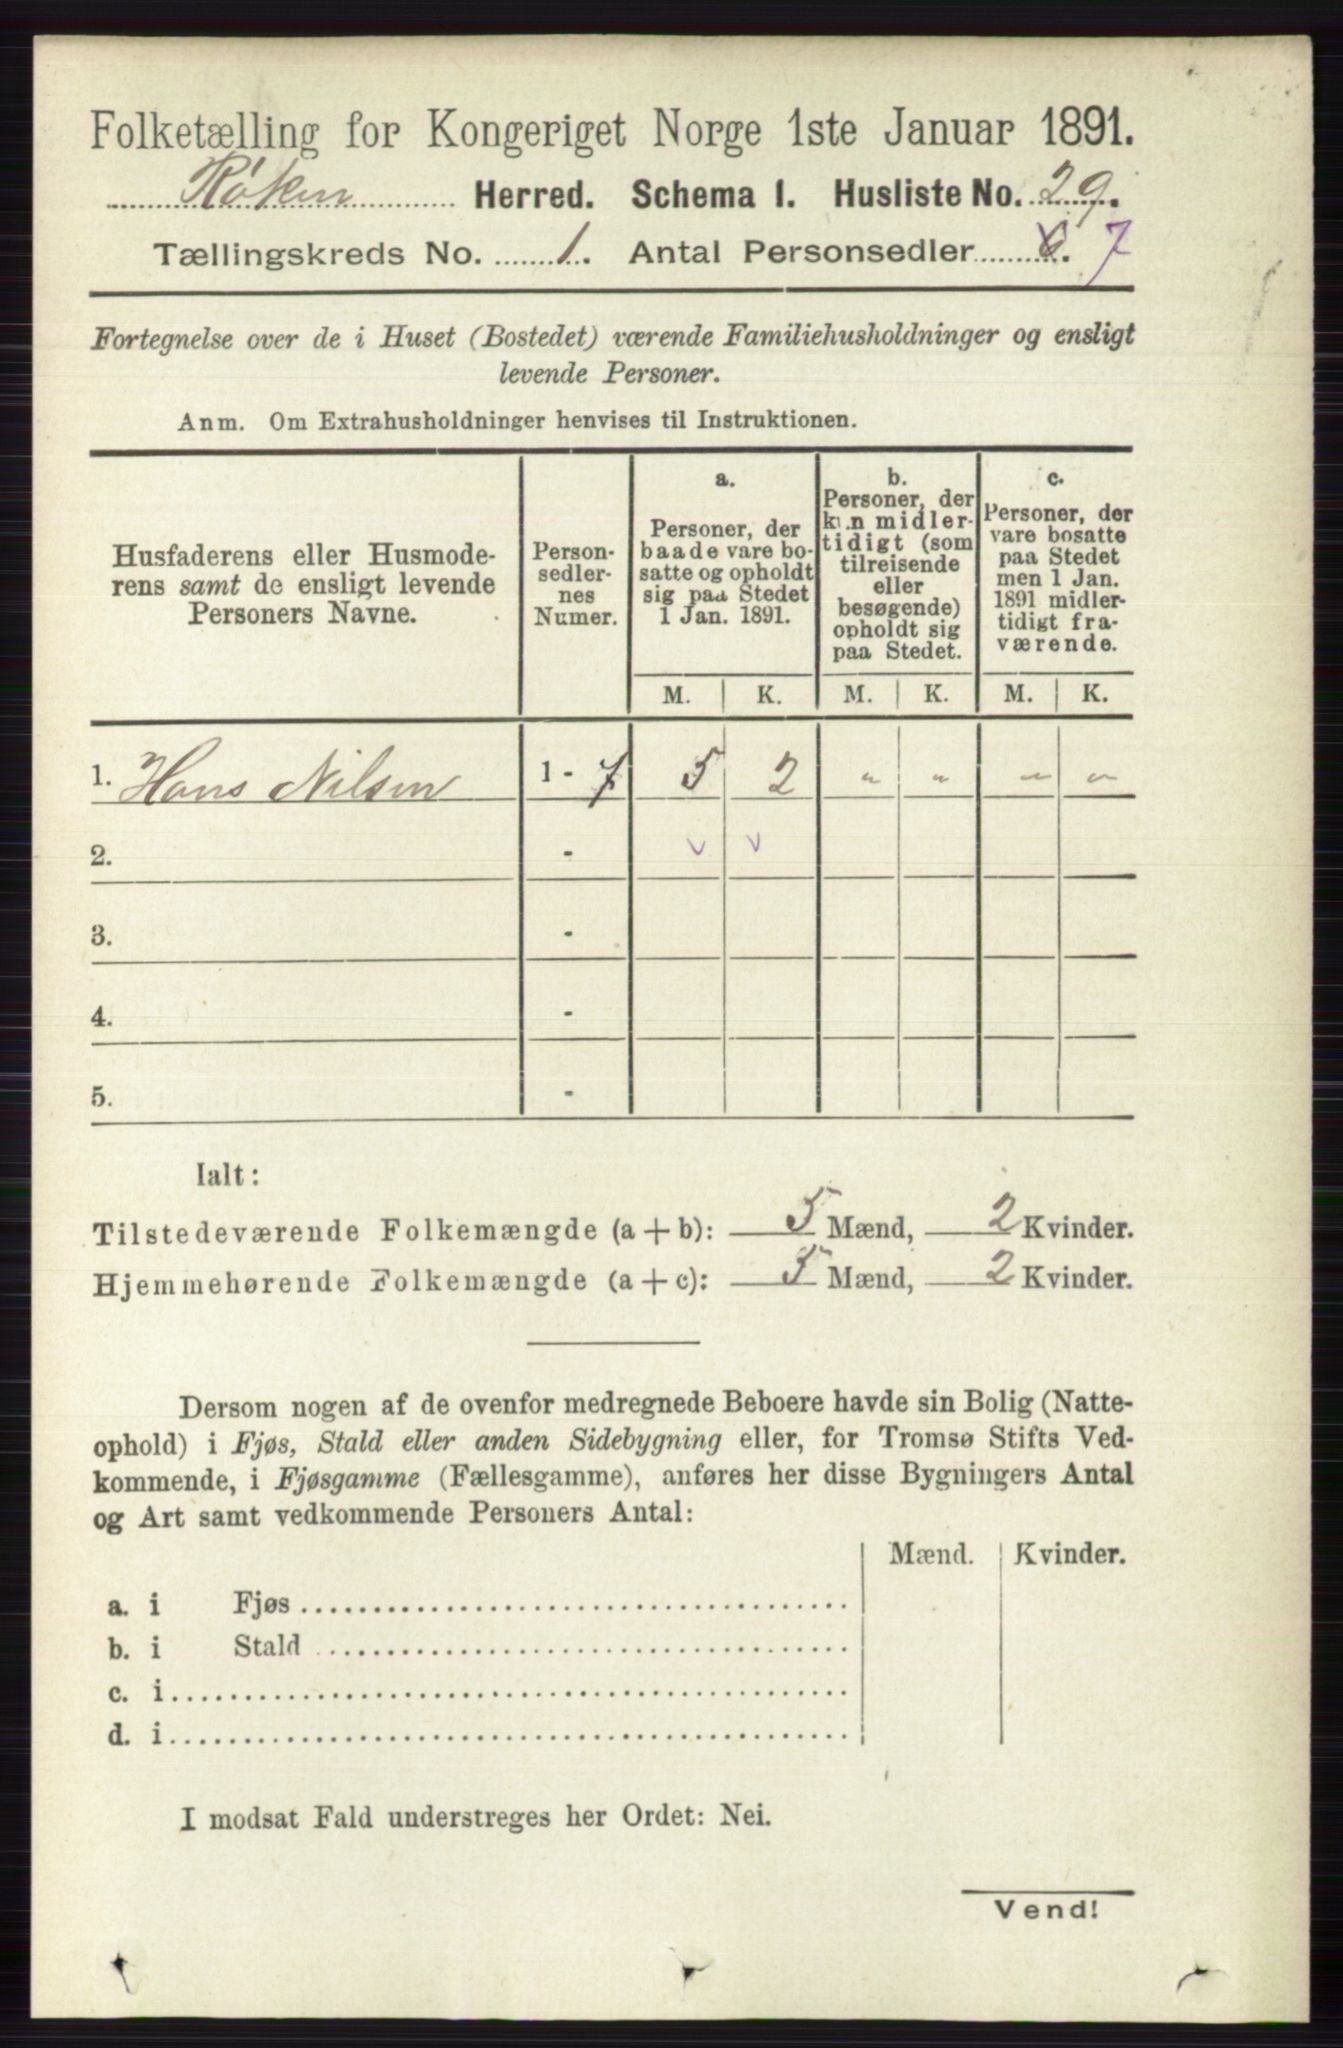 Folketælling for Kongeriget Norge 1ste Januar 1891.
Røken Herred. Schema 1. Husliste No. 29.
Tællingskreds No. 1. Antal Personsedler 6. 7
Fortegnelse over de i Huset (Bostedet) værende Familiehusholdninger og ensligt
levende Personer.
Anm. Om Extrahusholdninger henvises til Instruktionen.
Husfaderens eller Husmode-
rens samt de ensligt levende
Personers Navne.
Person-
sedler-
nes
Numer.
a.
Personer, der
baade vare bo-
satte og opholdt
sig paa Stedet
1 Jan. 1891.
b.
Personer, der
kun midler-
tidigt (som
tilreisende
eller
besøgende)
opholdt sig
paa Stedet.
c.
Personer, der
vare bosatte
paa Stedet
men 1 Jan.
1891 midler-
tidigt fra-
værende.
M. K. M. K. M. K.
1. Hans Nilsen 1 - 7 5 2 " " " "
2. - v v
3. -
4. -
5. -
Ialt:
Tilstedeværende Folkemængde (a + b): 5 Mænd, 2 Kvinder.
Hjemmehørende Folkemængde (a + c): 5 Mænd, 2 Kvinder.
Dersom nogen af de ovenfor medregnede Beboere havde sin Bolig (Natte-
ophold) i Fjøs, Stald eller anden Sidebygning eller, for Tromsø Stifts Ved-
kommende, i Fjøsgamme (Fællesgamme), anføres her disse Bygningers Antal
og Art samt vedkommende Personers Antal:
Mænd. Kvinder.
a. i Fjøs
b. i Stald
c. i
d. i
I modsat Fald understreges her Ordet: Nei.
Vend!